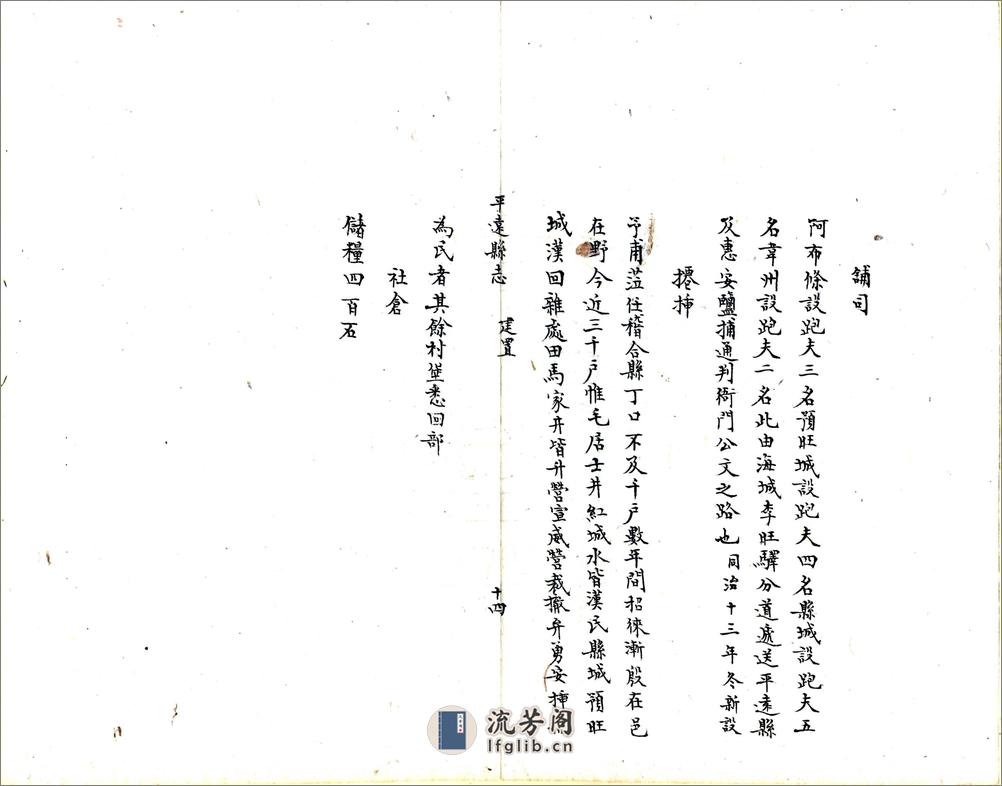 舖司
阿布條設跑夫三名預旺城設跑夫四名縣城設跑夫五
名韋州設跑夫二名此由海城李旺驛分道遞送平遠縣
及惠安鹽捕通判衙門公文之路也同治十三年冬新設
遷揷
予甫蒞任稽合縣丁口不及千戶數年間招徠漸殷在邑
在野今近三千戶惟毛居士井紅城水皆漢民縣城預旺
城漢回雜處田馬家井皆升營宣威營裁撤弁勇安揷
平遠縣志
建置
十四
為民者其餘村堡悉回部
社倉
儲糧四百石
流芳阁
lfglib.cn